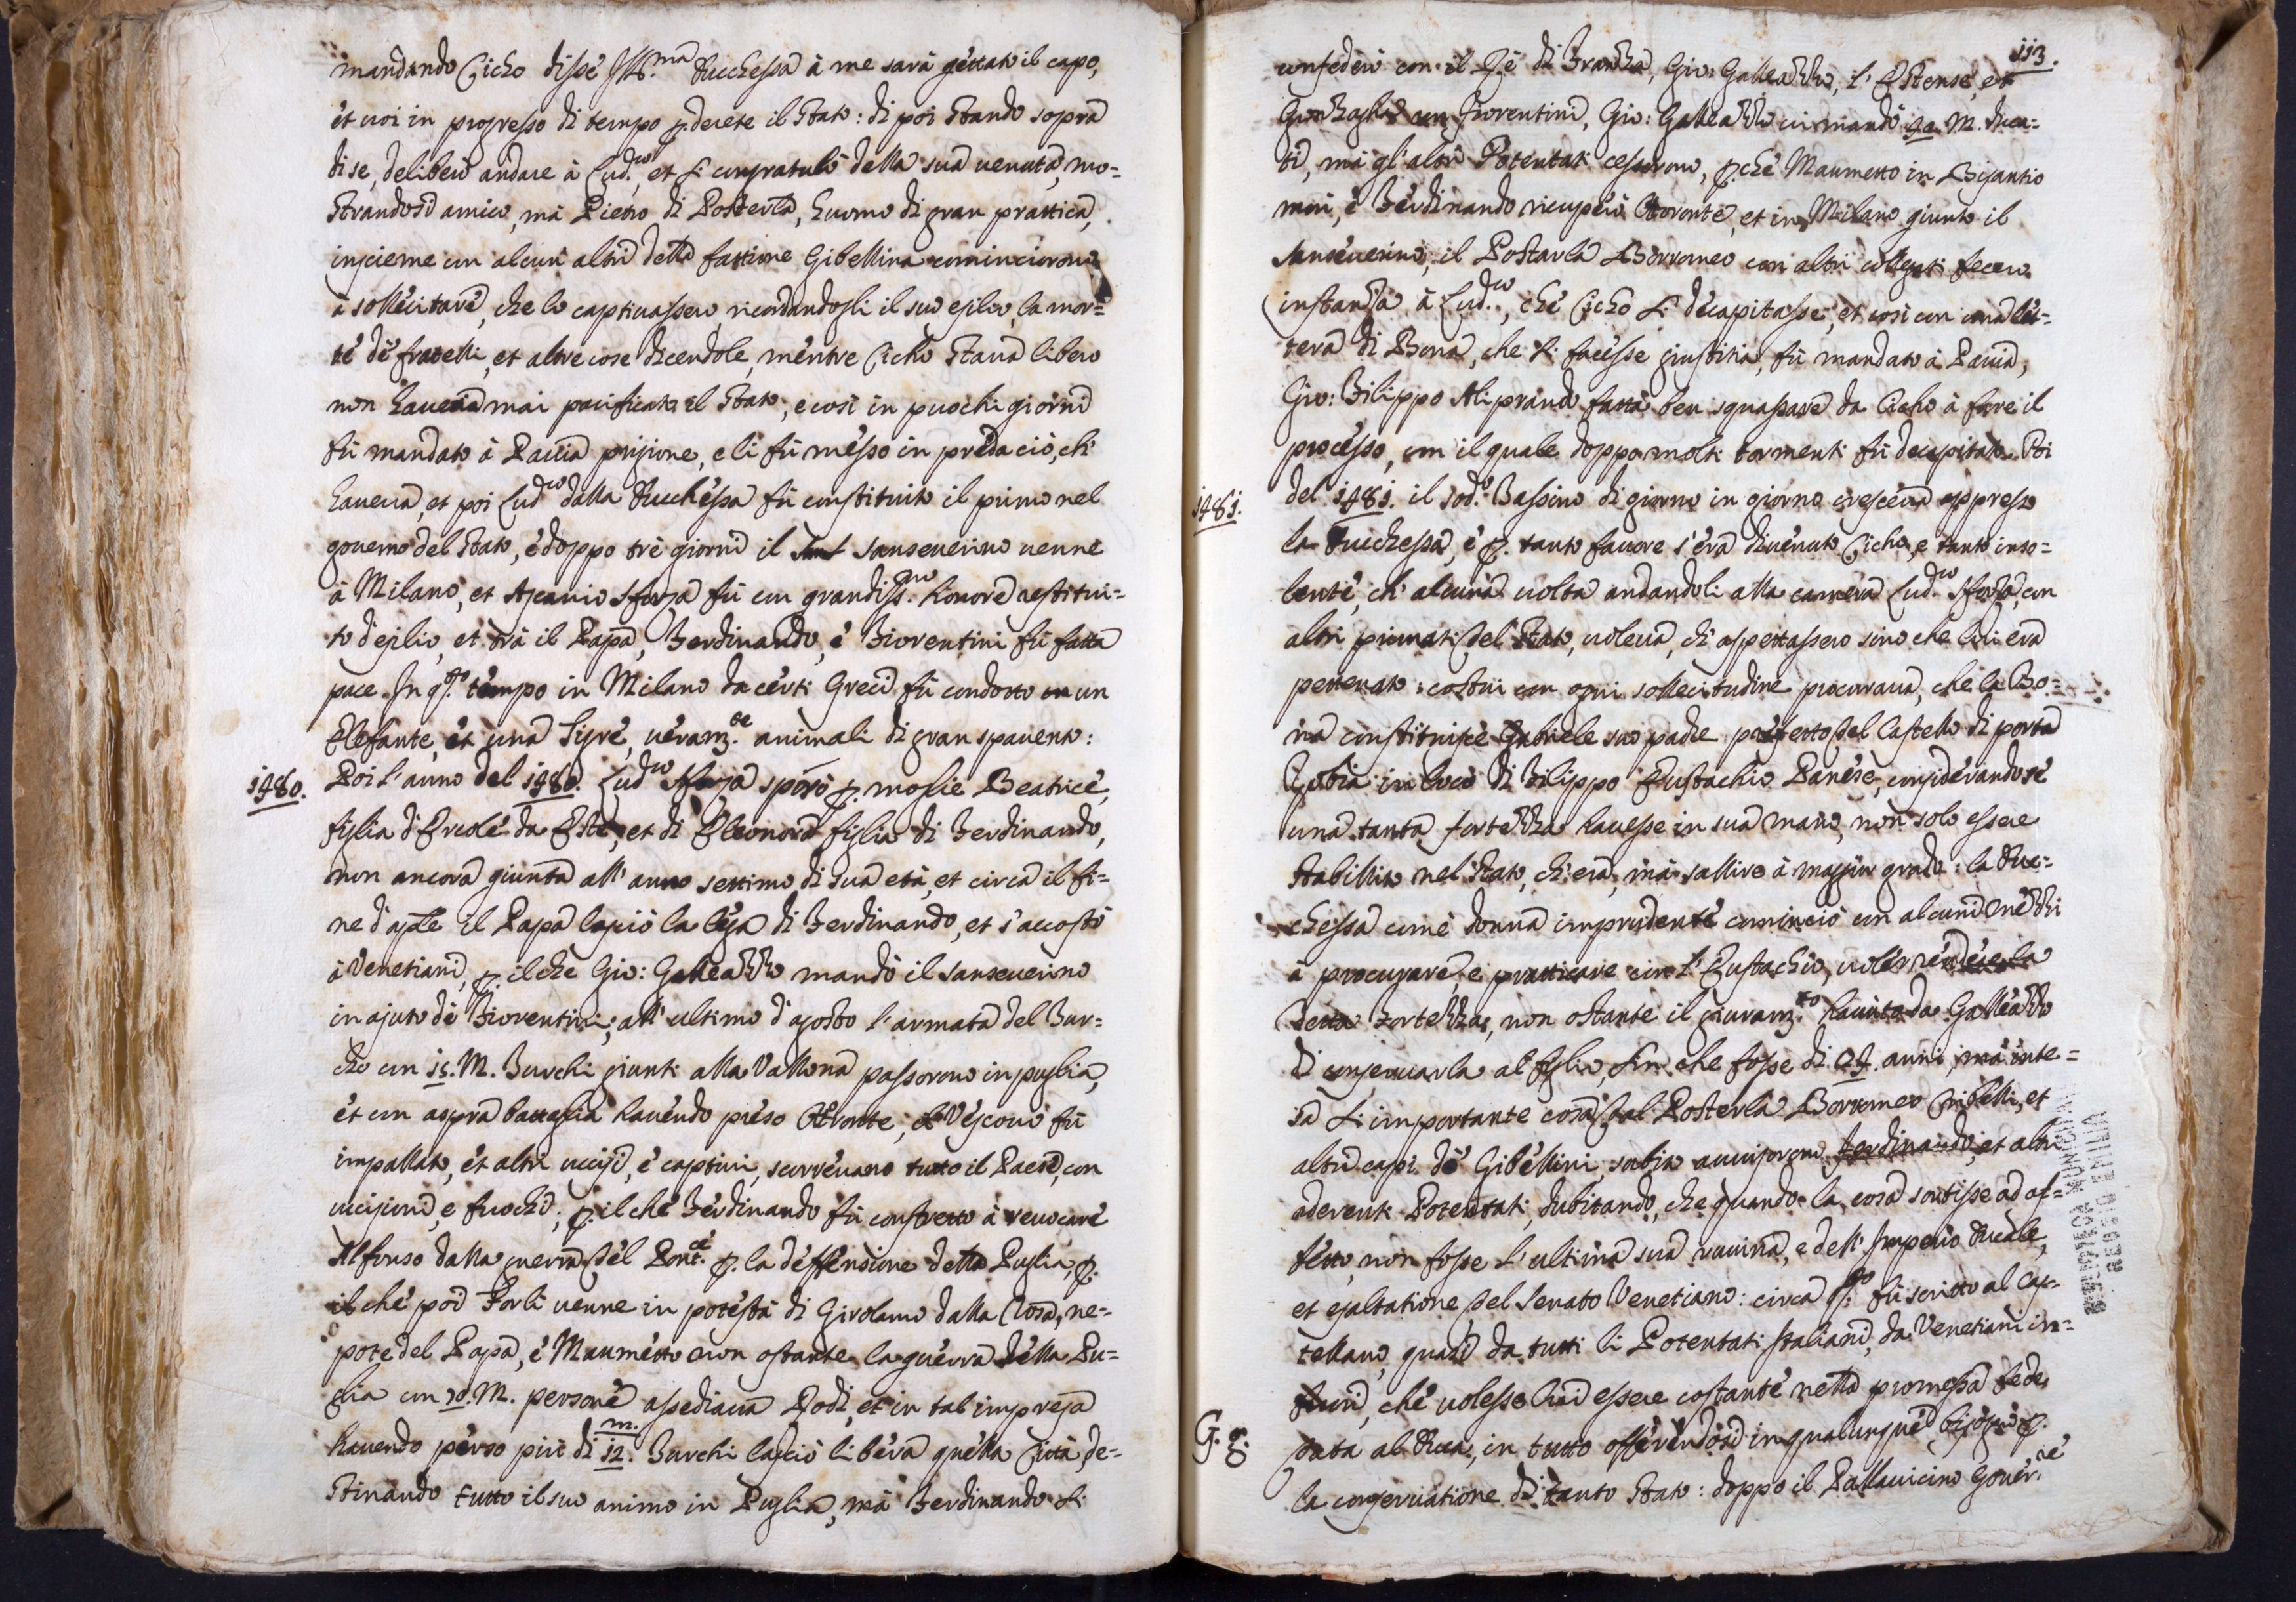 mandando Cicho disse Ill.ma Duchessa à me sarà gettato il capo,
et uoi in progresso di tempo p.derete il Stato: di poi stando sopra
di se, deliberò andare à Lud.co, et si congratulò della sua uenuta, mo=
strandosi amico, mà Pietro di Posterla, huomo di gran prattica,
insieme con alcuni altri della fattione Gibellina cominciorono
à sollecitare, che lo captiuassero ricordandogli il suo esilio, la mor=
te de fratelli, et altre cose dicendole, mentre Cicho staua libero
non haueria mai pacificato il Stato, e così in puochi giorni
fù mandato à Pauia prigione, e li fù messo in preda ciò, ch'
haueua, et poi Lud.co dalla Duchessa fù constituito il primo nel
gouerno del Stato, e doppo trè giorni il Sanseuerino uenne
à Milano, et Ascanio Sforza fù con grandiss.mo honore restitui=
to d'esilio, et trà il Papa, Ferdinando, e Fiorentini fù fatta
pace. In q.sto tempo in Milano da certi Greci fù condotto un
Elefante, et una Tigre, ueram.te animali di gran spauento:
1480. Poi l'anno del 1480. Lud.co Sforza sposò p. moglie Beatrice,
figlia d'Ercole da Este, et di Eleonora figlia di Ferdinando,
non ancora giunta all'anno settimo di sua età, et circa il fi=
ne d'aple il Papa lasciò la lega di Ferdinando, et s'accostò
à Venetiani, p. il che Gio: Galleazzo mandò il Sanseuerino
in ajuto de Fiorentini; all'ultimo d'agosto l'armata del Tur=
cho con 15. M. Turchi giunti alla Vallona passorono in puglia,
et con aspra battaglia hauendo preso Otronte, il Vescouo fù
impallato, et altri uccisi, e captiui, scorreuano tutto il Paese, con
uccisioni, e fuochi; p. il che Ferdinando fù constretto à reuocare
Alfonso dalla guerra del Pont.ce p. la deffensione della Puglia, p.
il che poi Forlì uenne in potestà di Girolamo dalla Rosa, ne=
pote del Papa, e Maumetto non ostante la guerra della Pu=
glia con 70. M. persone assediaua Rodi, et in tal impresa
hauendo perso più di 12. m. Turchi lasciò libera quella Città, de=
stinando tutto il suo animo in Puglia, mà Ferdinando si
113.
confederò con il Rè di Franza, Gio: Galleazzo, l'Estense, et
Gonzaghi con Fiorentini, Gio: Galleazzo ui mandò M. duca=
ti, mà gl'altri Potentati cessorono, p.che Maumetto in Bisantio
morì, e Ferdinando ricuperò Otronte, et in Milano giunto il
Sanseuerino, il Postarla Borromeo con altri collegati fecero
instanza à Lud.co, che Cicho si decapitasse, et così con una let=
tera di Bona, che si facesse giustitia, fù mandato à Pauia,
Gio: Filippo Aliprando fatta ben squassare da Cicho à fare il
processo, con il quale doppo molti tormenti fù decapitato. Poi
1481. del 1481. il sod.o Tassino di giorno in giorno cresceua appresso
la Duchessa, e p. tanto fauore s'era diuenuto Cicho, e tanto inso=
lente, ch'alcuna uolta andandoli alla camera Lud.co Sforza, con
altri primati del Stato, uoleua, ch'aspettassero sino che lui era
pettenato: costui con ogni sollecitudine procuraua, che la Bo=
na constituisse Gabriele suo padre prefetto del Castello di porta
Zobia in loco di Filippo Eustachio Pauese, considerando se
una tanta fortezza hauesse in sua mano, non solo essere
stabillito nel stato, ch'era, mà sallire à maggior grado: la Du=
chessa come donna imprudente cominciò con alcuni mezzi
à procurare, e pratticare con l'Eustachio, uoler rendere la
detta Fortezza, non ostante il giuram.to hauuto da Galleazzo
di conseruarla al figlio, sin che fosse di 24. anni, mà inte=
sa si importante cosa dal Posterla Borromeo Cribelli, et
altri capi de Gibellini, subito auuisorono Ferdinando, et altri
aderenti Potentati, dubitando, che quando la cosa sortisse ad ef=
fetto, non fosse l'ultima sua ruuina, e dell'Imperio Ducale,
et esaltatione del Senato Venetiano: circa q.sto fù scritto al Cas=
tellano, quasi da tutti li Potentati Italiani, da Venetiani in=
fuori, che uolesse lui essere costante nella promessa fede
data al Duca, in tutto offerendosi in qualunque bisogno p.
la conseruatione di tanto Stato: doppo il Pallauicino Gouer.re
G. g.